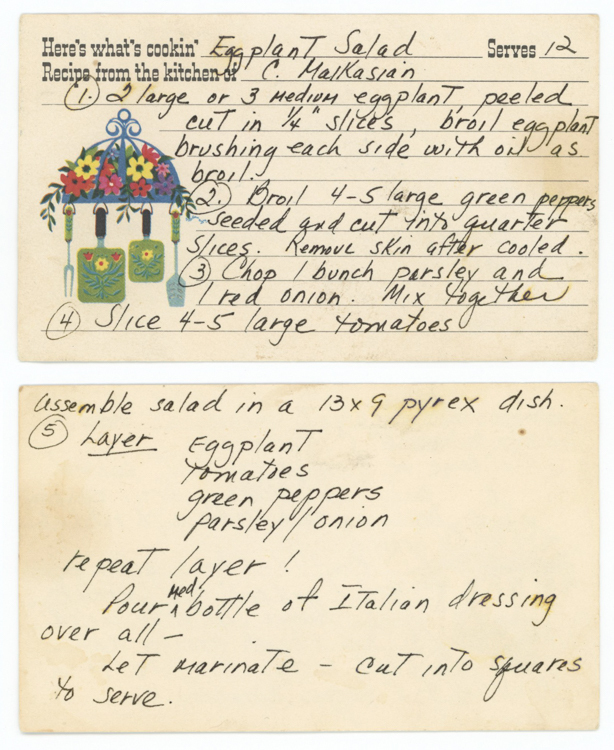 Here's what's cookin' Eggplant Salad Serves 12
Recipe from the kitchen of C. Malkasian
1. 2 large or 3 medium eggplant, peeled
cut in 1/4" slices, broil eggplant
brushing each side with oil as
broil.
2. Broil 4-5 large green peppers
seeded and cut into quarter
slices. Remove skin after cooled.
3 Chop 1 bunch parsley and
1 red onion. Mix together
4 Slice 4-5 large tomatoes
Assemble salad in a 13x9 pyrex dish.
5 Layer Eggplant
tomatoes
green peppers
parsley/onion
repeat layer!
Pour med. bottle of Italian dressing
over all —
Let marinate - cut into squares
to serve.